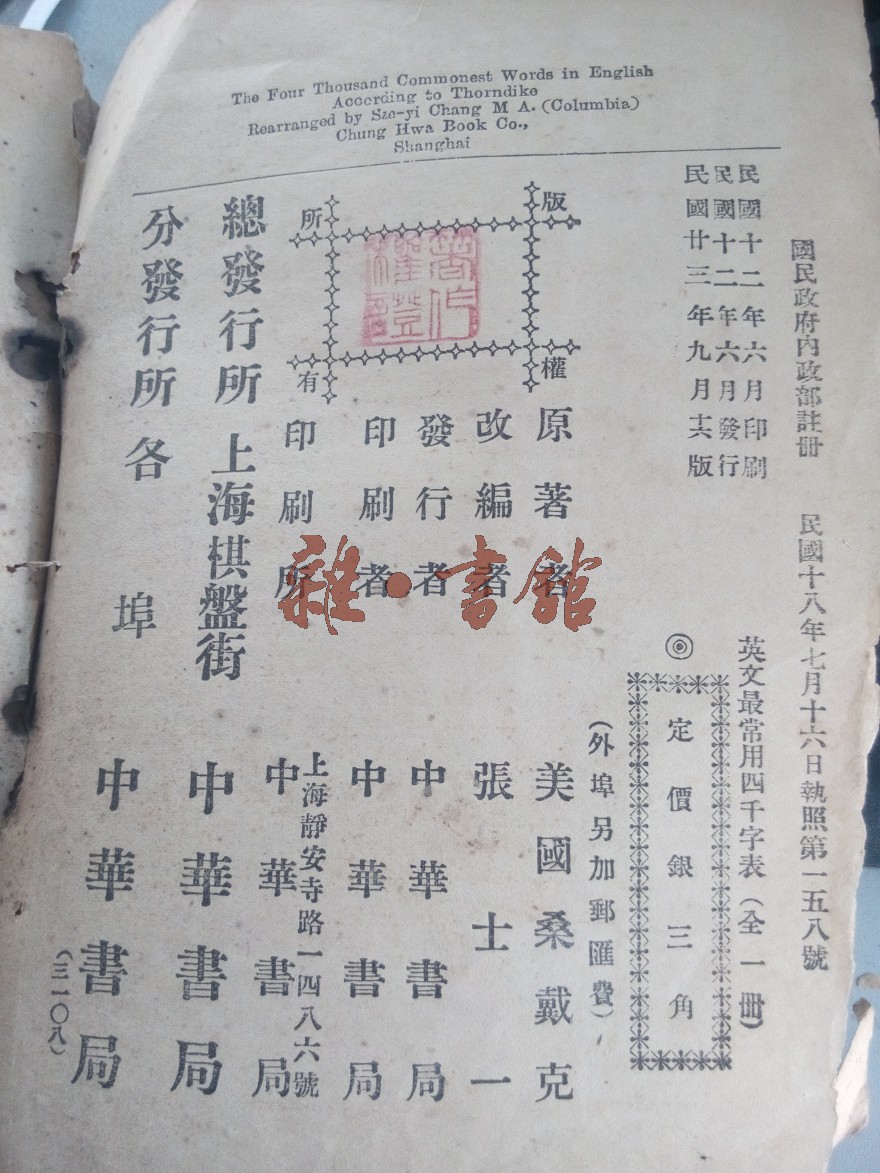 The Four Thousand Commonest Words in English
According to Thorndike
Rearranged by Szo-yi Chang M A. (Columbia)
Chung Hwa Book Co.,
Shanghai
國民政府內政部註冊 民國十八年七月十六日執照第一五八號
民國十二年六月印刷
民國十二年六月發行
民國廿三年九月十六版
英文最常用四千字表(全一冊)
◎
定價銀三角
(外埠另加郵匯費)
版權所有
著作權證
原著者 美國桑戴克
改編者 張士一
發行者 中華書局
印刷者 中華書局
上海靜安寺路一四八六號
印刷所 中華書局
總發行所 上海棋盤街 中華書局
分發行所 各埠 中華書局
(三一〇八)
雜·書館